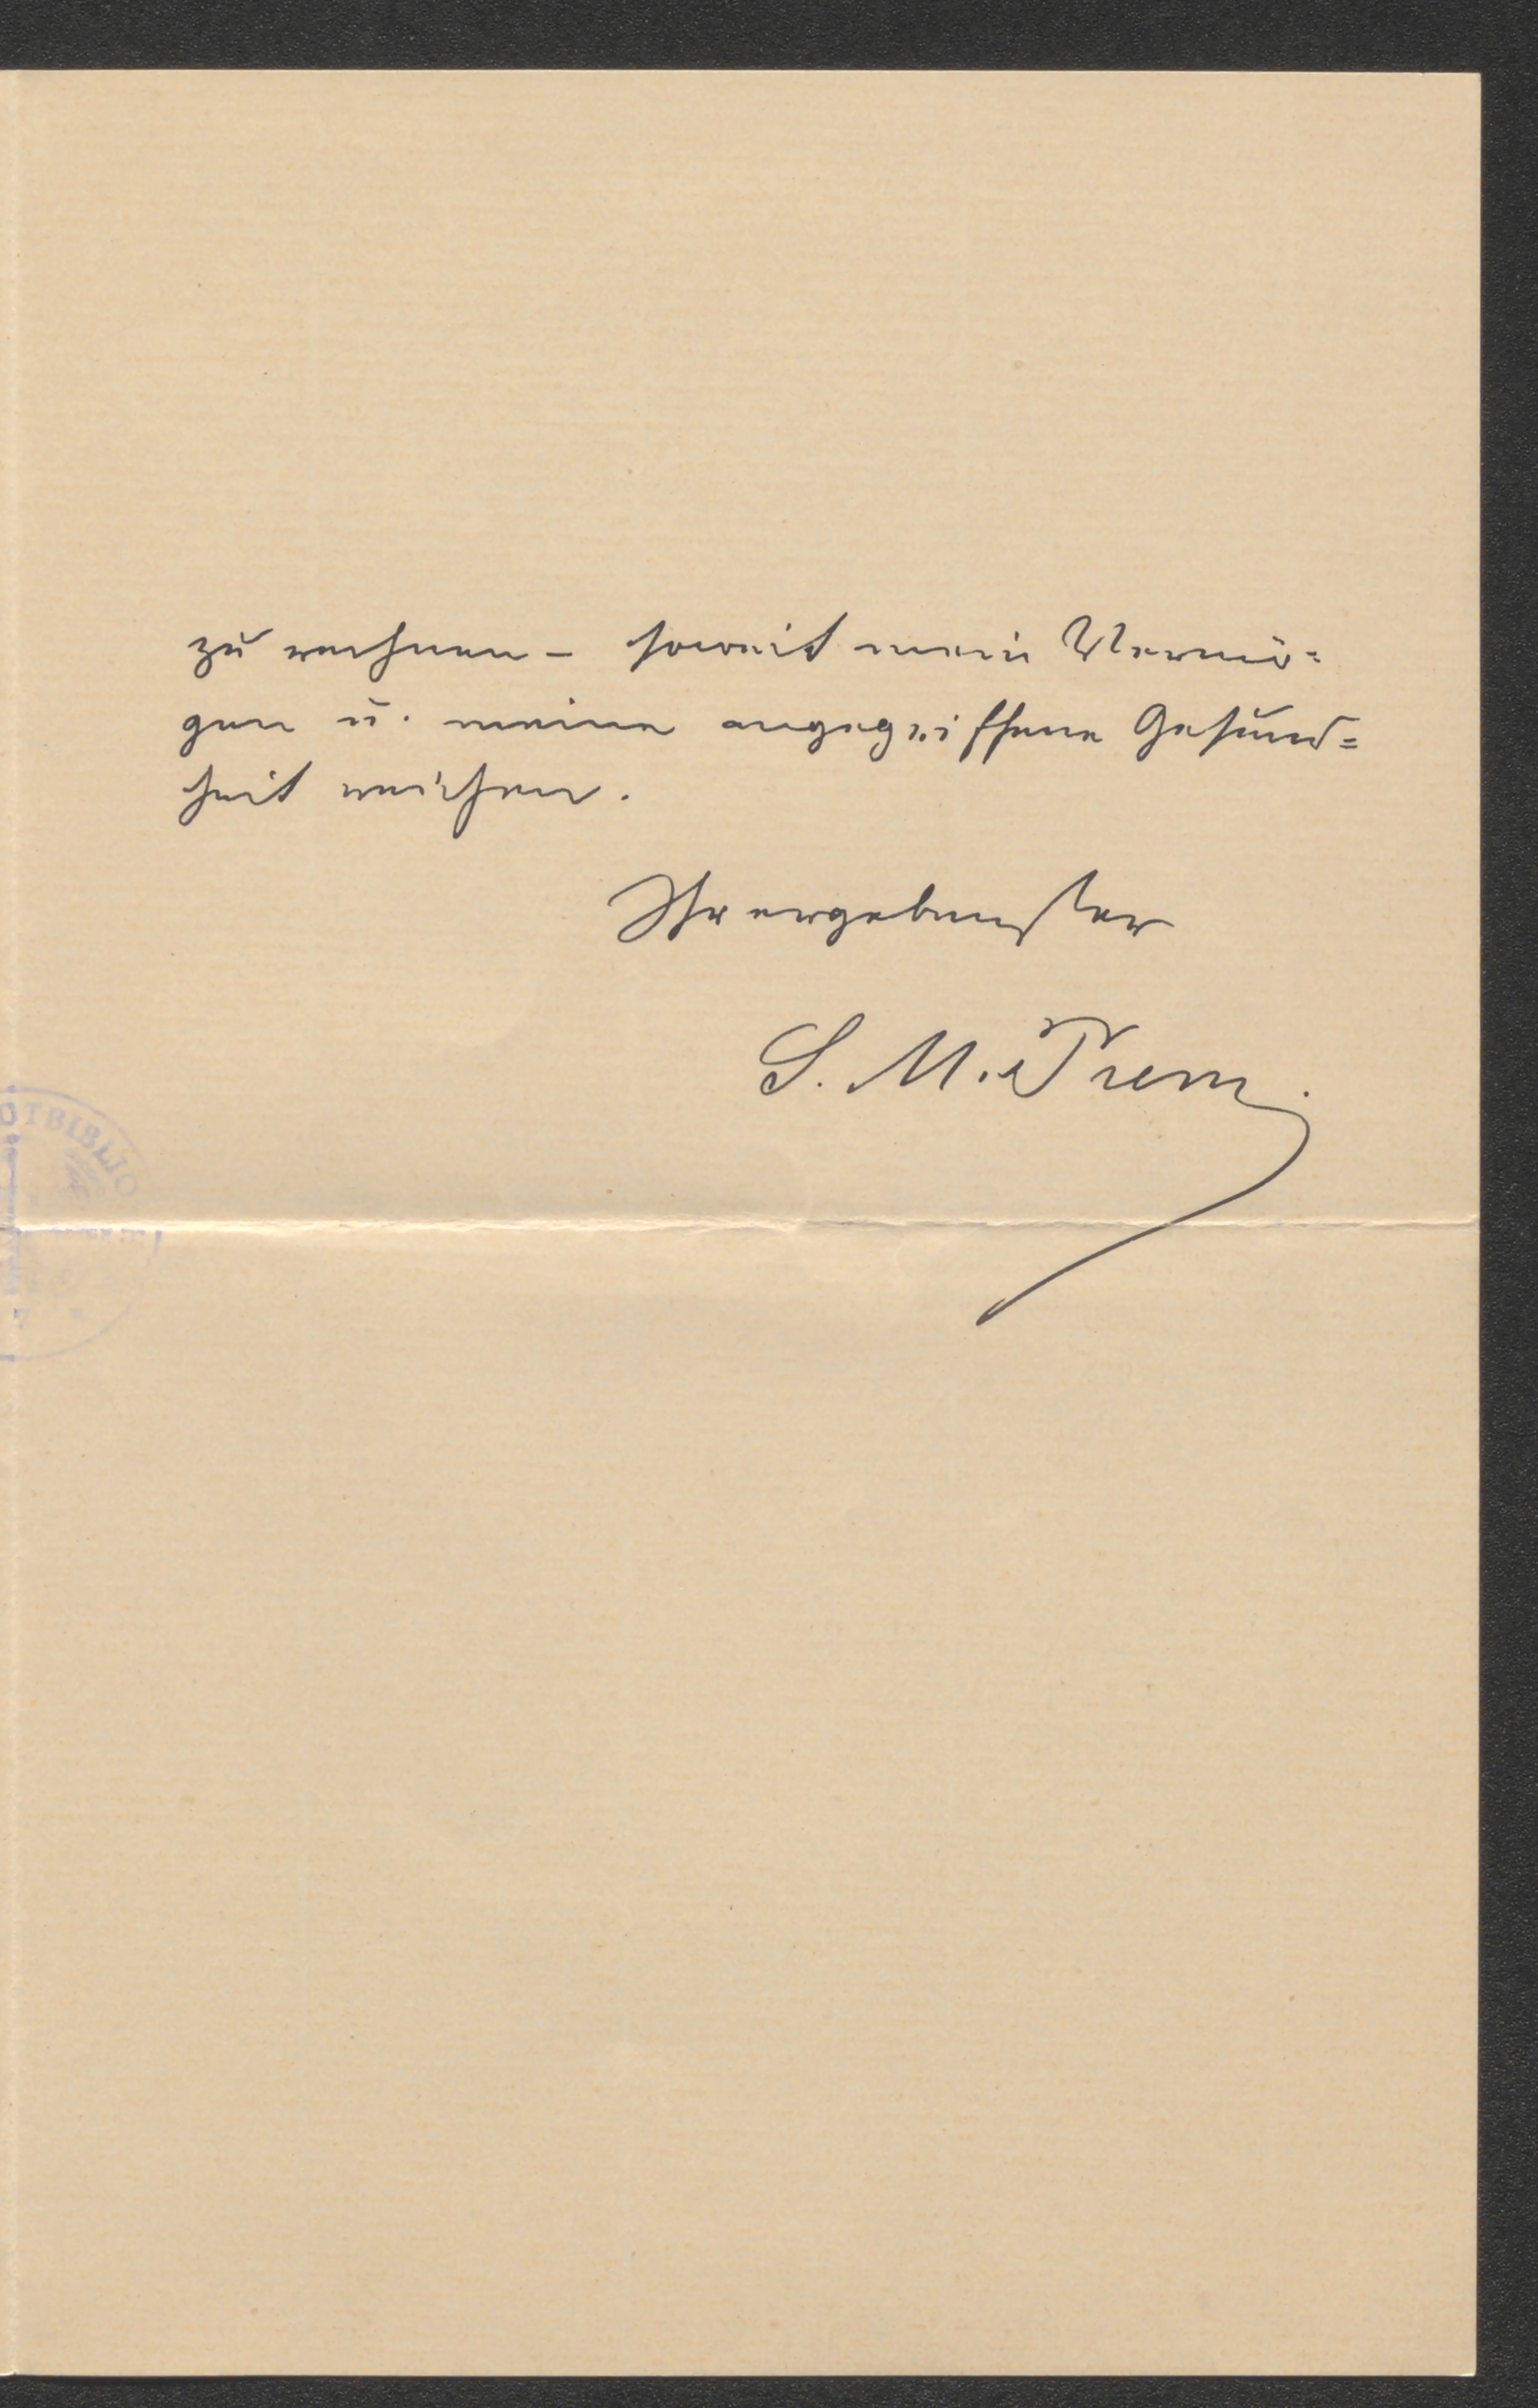 zu rechnen – soweit mein Vermö=
gen u. meine angegriffene Gesund=
heit reichen.
Ihr ergebenster
S. M. Prem.
OTBIBLIO